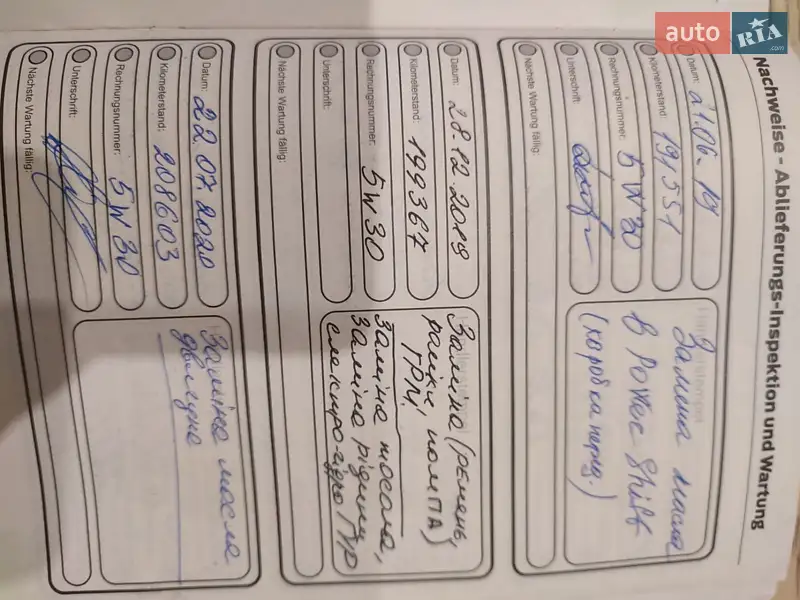 auto RIA .com
Nachweise - Ablieferungs-Inspektion und Wartung
Datum: 21.06.19
Kilometerstand: 191551
Rechnungsnummer: 5W30
Unterschrift:
Nächste Wartung fällig:
Замена масла
в Power Shift
(коробка перед.)
Datum: 28.12.2019
Kilometerstand: 199367
Rechnungsnummer: 5W30
Unterschrift:
Nächste Wartung fällig:
Заміна (ремень,
ролики, помпа)
ГРМ,
Заміна тосола,
Заміна рідину
ГУР
Datum: 22.07.2020
Kilometerstand: 208603
Rechnungsnummer: 5W30
Unterschrift:
Nächste Wartung fällig:
Заміна масла
двигуна